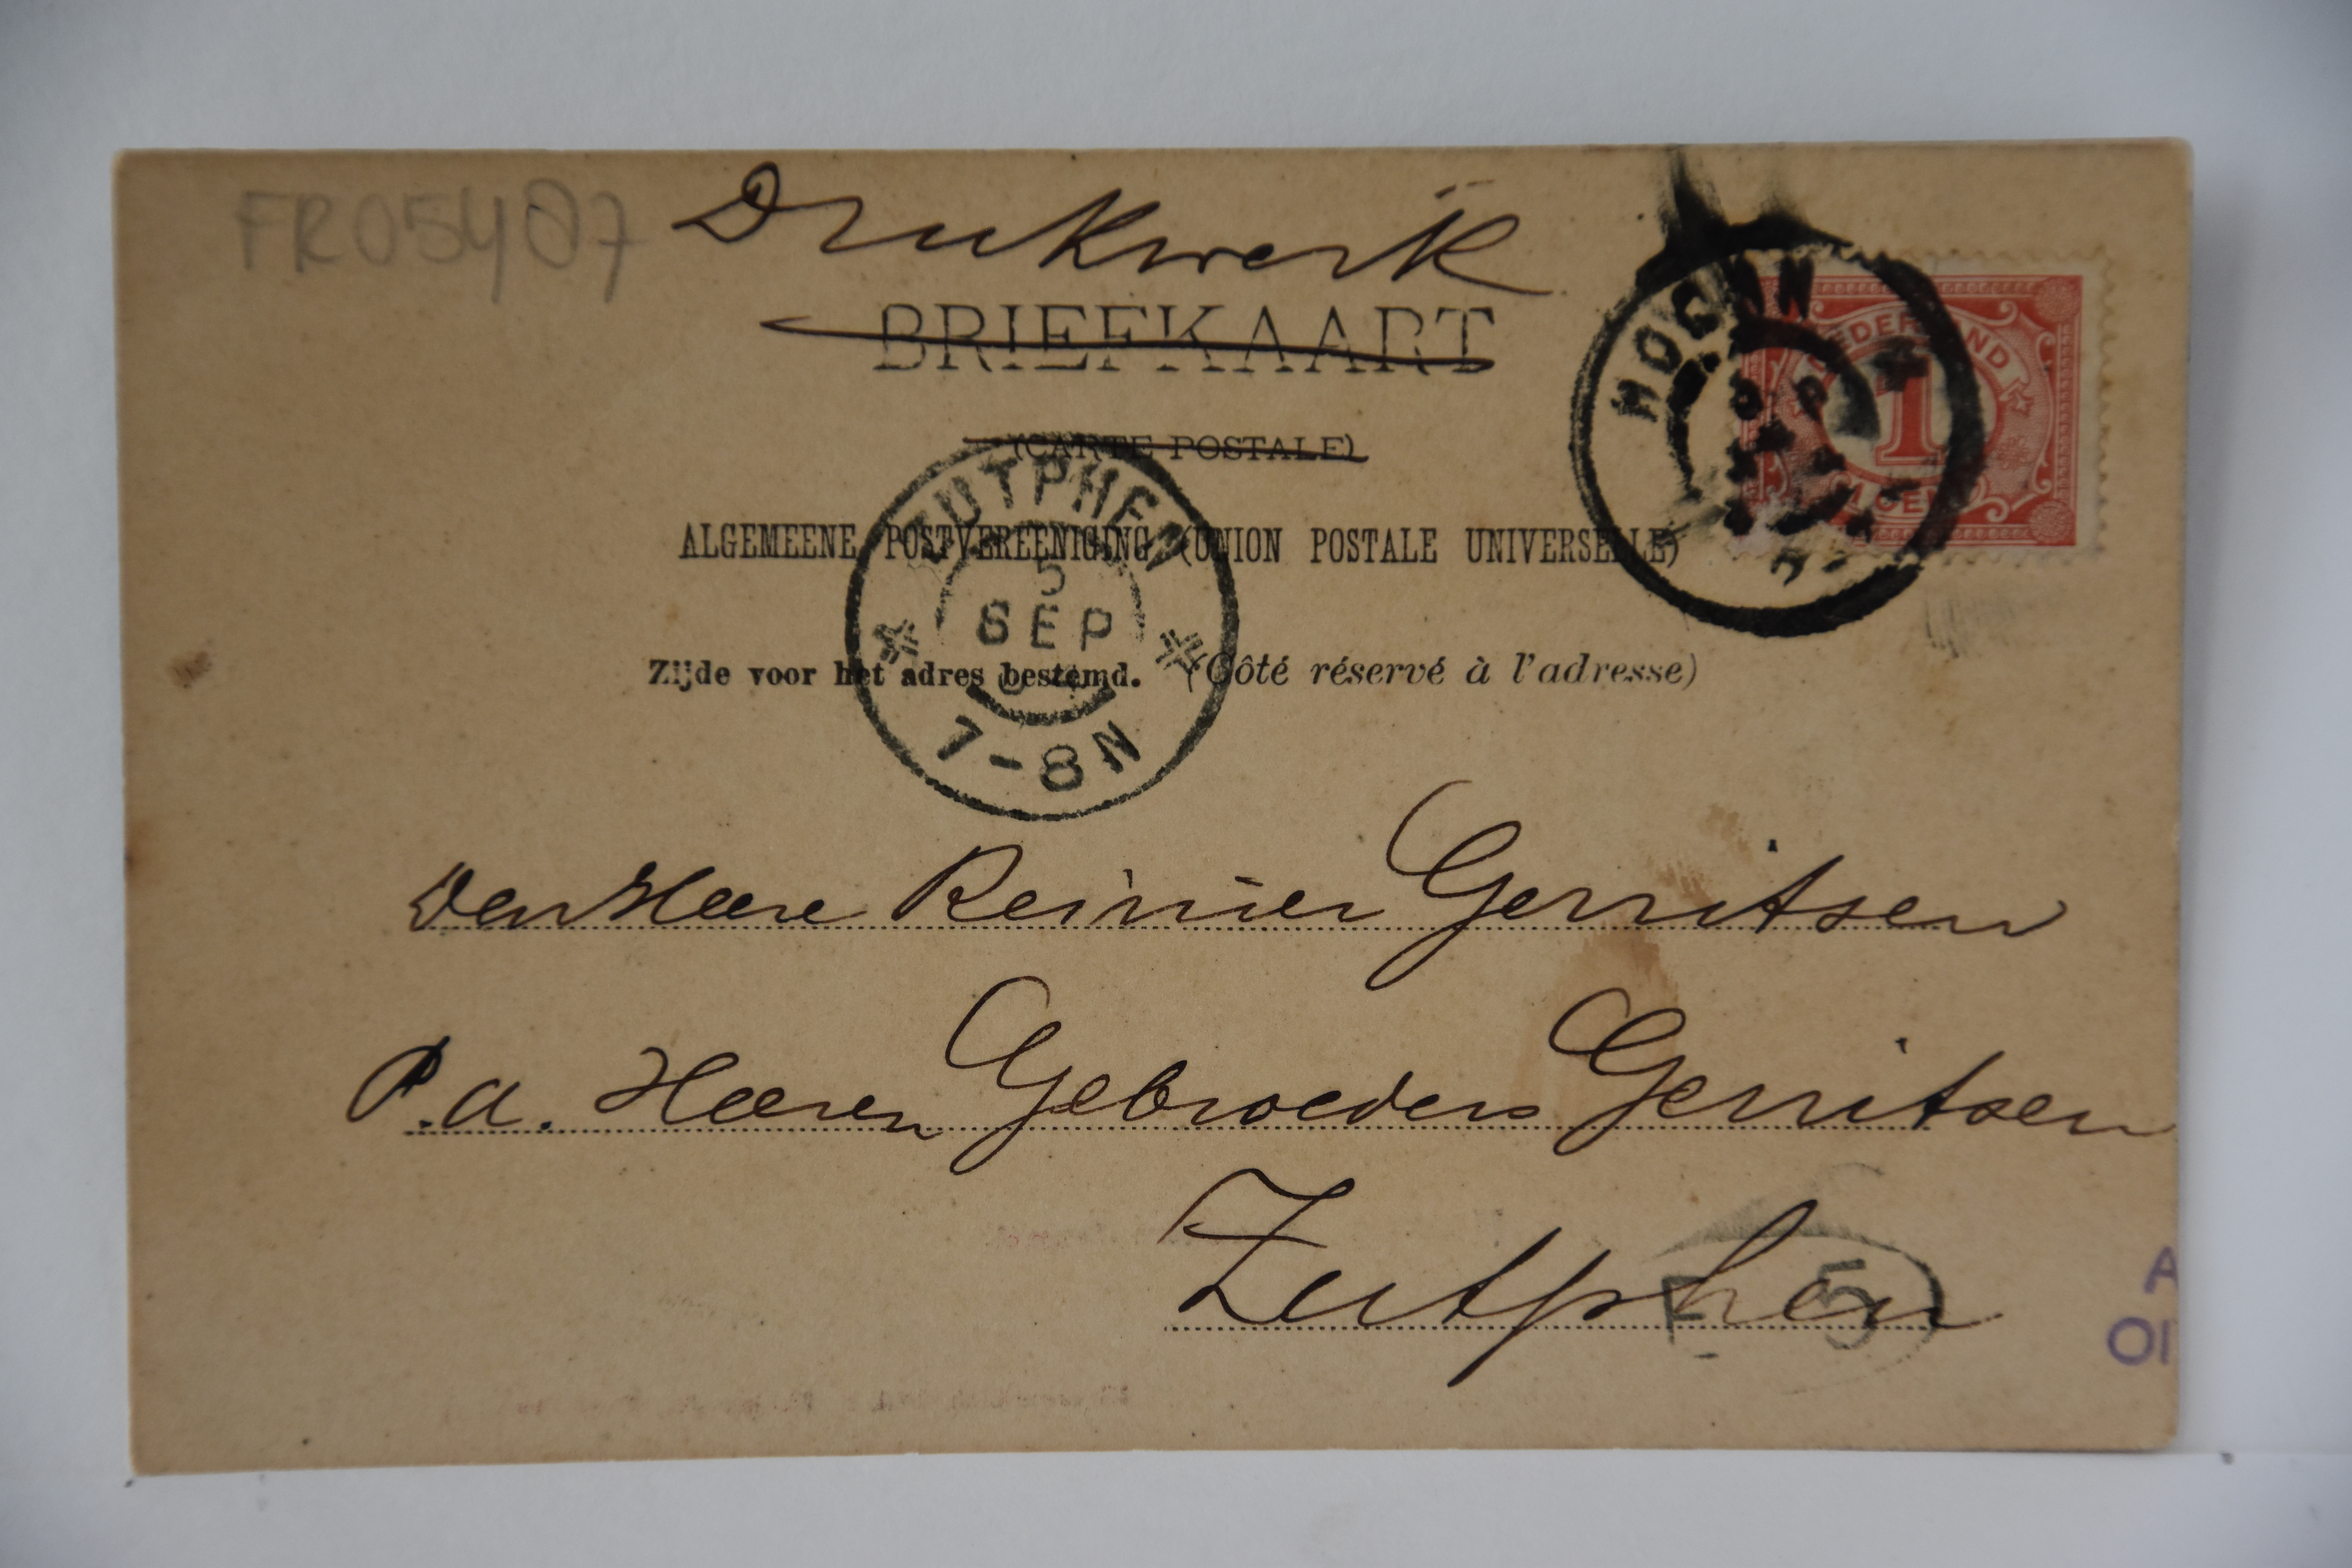 FR05407
Drukwerk
BRIEFKAART
(CARTE POSTALE)
NEDERLAND
1
ZUTPHEN
5
SEP
7-8N
ALGEMEENE POSTVEREENIGING (UNION POSTALE UNIVERSELLE)
Zijde voor het adres bestemd. (Côté réservé à l'adresse)
Den Heere Reinier Gerritsen
P.a. Heeren Gebroeders Gerritsen
Zutphen
5
A
OI